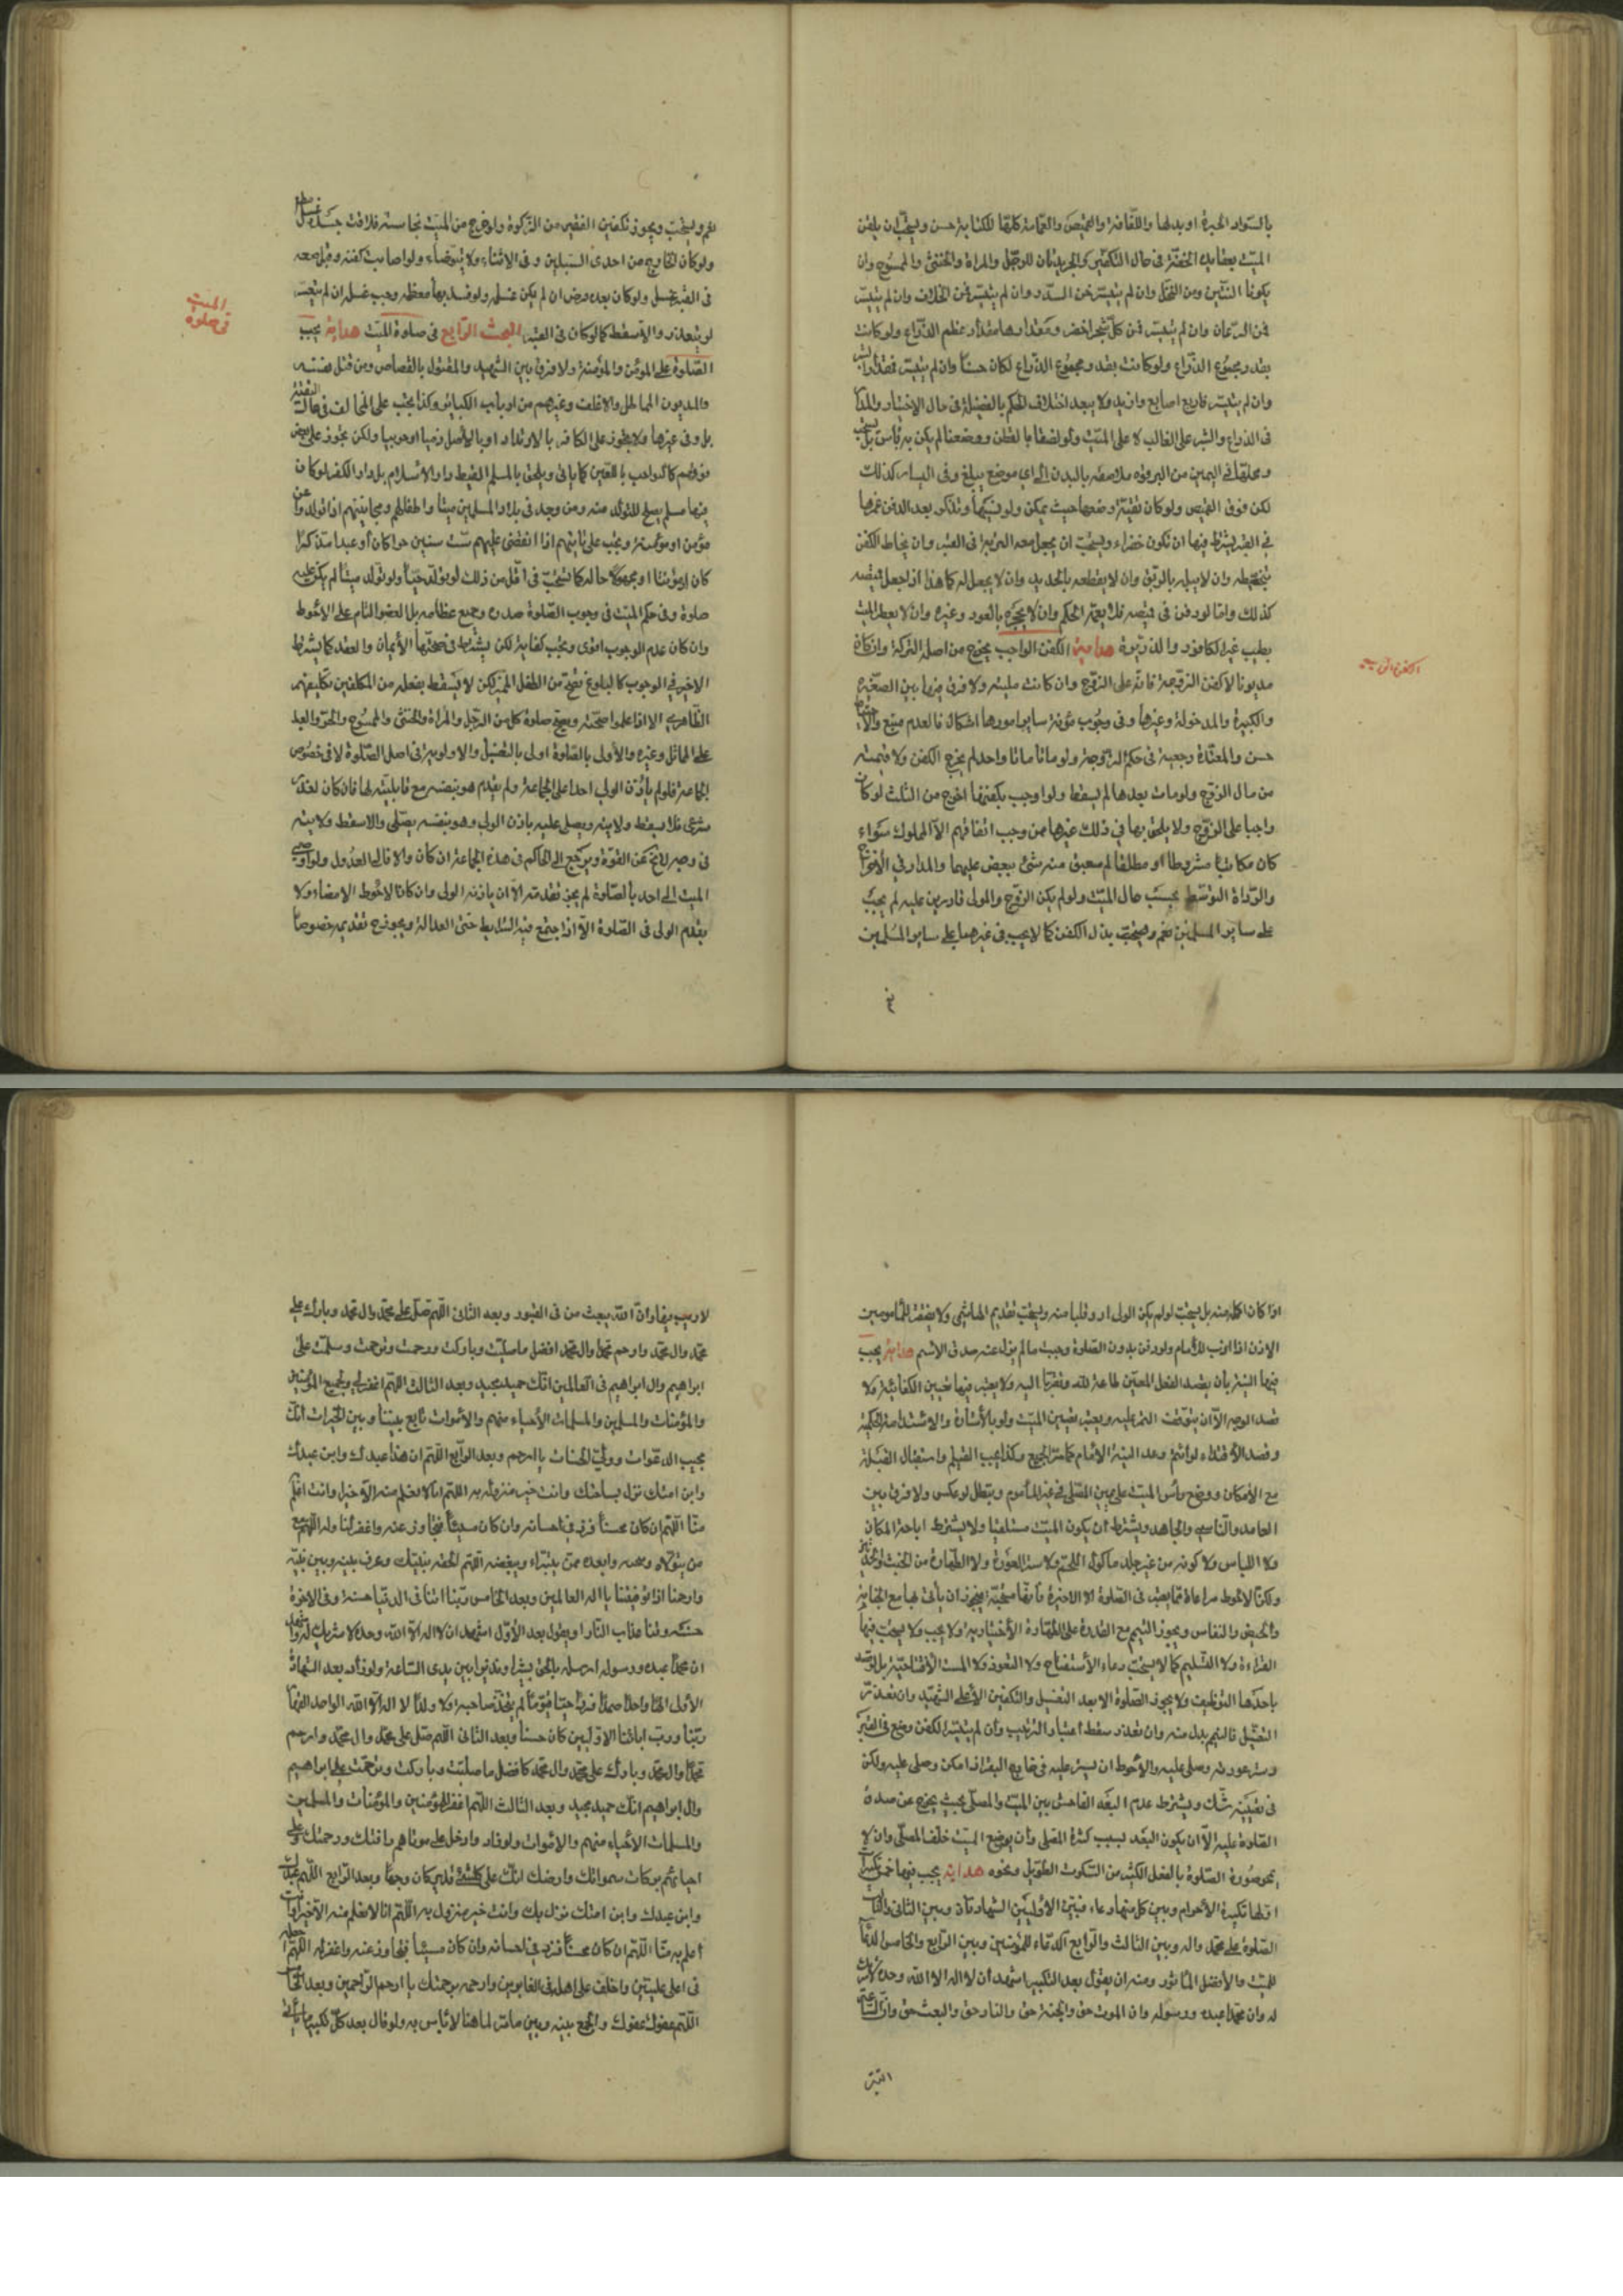 بالسواد الحبرة او بدلها واللفافة والقميص والعمامة كلها للكتابة حسن ويستحب ان يلقن
الميت بعقايد الحقة في حال التكفين والجريدتان للرجل والمراة والخنثى والممسوح وان
يكونا اثنتين ومن النخل وان لم يتيسر فمن السدر وان لم يتيسر فمن الخلاف وان لم يتيسر
فمن الرمان وان لم يتيسر فمن كل شجر اخضر ومقدارهما مقدار عظم الذراع ولو كانت
بقدر مجموع الذراع لكان حسنا وان لم يتيسر فمقدار
وان لم يتيسر فاربع اصابع وازيد ولا يبعد اختلاف الحكم بالفضيلة في حال الاختيار والمدار
في الذراع والشبر على الغالب لا على الميت ولو لففا بالقطن ووضعنا لم يكن به باس بل
ومحلهما في اليمين من الترقوة ملاصقة بالبدن الى اي موضع يبلغ وفي اليسار كذلك
لكن فوق القميص ولو كان تقية وضعها حيث يمكن ولو نسيها وتذكر بعد الدفن غرزها
في القبر يشترط فيها ان تكون خضراء ويستحب ان يجعل معه التربة في القبر وان يخاط الكفن
بخيوطه وان لا يبله بالريق وان لا يقطعه بالحديد وان لا يجعل له كما هذا اذا جعل قميصه
كذلك واما لو دفن في قميصه فلا يعمه الحكم وان لا يجمره بالعود وغيره وان لا يعطر الميت
بطيب غير الكافور والذريرة هداية الكفن الواجب يخرج من اصل التركة وان كان
مديونا الا كفن الزوجة فانه على الزوج وان كانت مليئة ولا فرق فيها بين الصغيرة
والكبيرة والمدخولة وغيرها وفي وجوب مؤنة ساير امورها اشكال فالعدم متبع
حسن والمعتدة رجعية في حكم الزوجة ولو ماتا معا لم يخرج الكفن ولا قيمته
من مال الزوج ولو مات بعدها لم يسقط ولو اوجب بكفنها اخرج من الثلث لو كان
واجبا على الزوج ولا يلحق بها في ذلك غيرها ممن وجب انفاقهم الا المملوك سواء
كان مكاتبا مشروطا او مطلقا لم يعتق منه شيء
والرداة التوسط بحسب حال الميت ولو لم يكن الزوج والمولى قادرين عليه لم يجب
على ساير المسلمين نعم يستحب بذل الكفن كما لا يجب في غيرهما على ساير المسلمين
الكفن الواجب
نعم ويستحب ويجوز تكفين الفقير من الزكوة ولو خرج من الميت نجاسة فلاقت جسده
ولو كان الخارج من احدى السبيلين وفي الاثناء ولا يتوضاء ولو اصابت كفنه وقبل وضعه
في القبر غسل ولو كان بعده قرض ان لم يكن غسله ولو فسد بها معظمه وجب غسله ان لم يتعسر
لو يتعذر والا سقط كما لو كان في القبر البحث الرابع في صلوة الميت هداية يجب
الصلوة على المؤمن والمؤمنة ولا فرق بين الشهيد والمقتول بالقصاص ومن قتل نفسه
والمديون المماطل والاغلف وغيرهم من ارباب الكبائر وكذا يجب على المخالف في حال التقية
بل وفي غيرها ولا يجوز على الكافر بالارتداد او بالاصل ذميا او حربيا ولكن يجوز على بعض
فرقهم كالنواصب ويلحق بالمسلم اللقيط دار الاسلام بل دار الكفر لو كان
فيها مسلم يصلح للتولد منه ومن وجد في بلاد المسلمين ميتا واطفالهم ومجانينهم اذا تولدوا عن
مؤمن او مؤمنة ويجب على ابنائهم اذا انقضى عليهم ست سنين حرا كان او عبدا مذكرا
كان او مؤنثا او مجهولا حاله كما يستحب في اقل من ذلك لو تولد حيا ولو تولد ميتا لم يكن عليه
صلوة وفي حكم الميت في وجوب الصلوة صدره وجميع عظامه بل العضو التام على الاحوط
وان كان عدم الوجوب اقوى ويجب كفاية لكن يشترط في صحتها الايمان والعقد كما يشترط
الاخير في الوجوب كالبلوغ فتصح من الطفل المميز لكن لا يسقط بفعله من المكلفين تكليفهم
الظاهري الا اذا علموا صحته ويصح صلوة كل من الرجل والمراة والخنثى والممسوح والحر والعبد
على المماثل وغيره والاولى بالصلوة اولى بالغسل والاولوية في اصل الصلوة لا في خصوص
الجماعة فلو لم ياذن الولي احدا على الجماعة ولم يتقدم هو بنفسه مع قابليته لها فان كان لعذر
شرعي فلا يسقط ولايته ويصلى عليه باذن الولي وهو بنفسه يصلى والا سقط ولايته
في وجه لا يخ عن القوة ويرجع الى الحاكم في هذه الجماعة ان كان والا فالى العدول ولو اوصى
الميت الى احد بالصلوة لم يجز تقدمه الا ان ياذنه الولي وان كان الاحوط الامضاء ولا
يتقدم الولي في الصلوة الا اذا اجتمع فيه الشرايط حتى العدالة ويجوز ح تقديمه خصوصا
الميت
في صلوة
اذا كان اكمل منه بل يستحب لو لم يكن الولي ويستحب تقديم الهاشمي ولا يفتقر المأمومين
الاذن اذا اذن للامام ولو دفن بدون الصلوة وجبت ما لم يزل عنه صدق الاسم هداية يجب
فيها النية بان يقصد الفعل المعين طاعة لله وتقربا اليه ولا يعتبر فيها تعيين الكفائية ولا
قصد الوجه الا ان يتوقف التعين عليه ويعتبر تعيين الميت ولو بالاشارة والاستدامة الحكمية
وقصد الاقتداء لو ائتم وعد النية الامام كما مر الجميع وكذا يجب القيام واستقبال القبلة
مع الامكان ووضع رأس الميت على يمين المصلي في غير المأموم ويبطل لو عكس ولا فرق بين
العامد والناسي والجاهد ويشترط ان يكون الميت مستلقيا ولا يشترط اباحة المكان
ولا اللباس ولا كونه من غير جلد مأكول اللحم ولا ستر العورة ولا الطهارة من الخبث
ولكن الاحوط مراعاة ما يعتبر في الصلوة الا الاخيرة فانها مستحبة فيجوز ان يأتى بها مع الجنابة
والحيض والنفاس ويجوز التيمم مع القدرة على الطهارة الاختيارية ولا يجب ولا يستحب فيها
القراءة ولا التسليم كما لا يستحب دعاء الاستفتاح ولا التعوذ ولا الست الافتتاحية بل لو قصد
باحدها التوظيف ولا يجوز الصلوة الا بعد التغسيل والتكفين الا على الشهيد وان تعذر
التغسيل فالتيمم بدل منه وان تعذر سقط اعتبار الترتيب وان لم يتيسر الكفن وضع في القبر
وستر عورته وصلى عليه والاحوط ان يستر عليه في خارج القبر اذا امكن وصلى عليه ولكن
في تعيينه شك ويشترط عدم البعد الفاحش بين الميت والمصلي بحيث يخرج عن صدق
الصلوة عليه الا ان يكون البعد لسبب كثرة المصلي وان يوضع الميت خلف المصلي وان لا
يمحو صورة الصلوة بالفعل الكثير من السكوت الطويل ونحوه هداية يجب فيها خمس تكبيرات
اولها تكبيرة الاحرام وبين كل منها دعاء فبين الاوليين الشهادتان وبين الثاني والثالث
الصلوة على محمد واله وبين الثالث والرابع الدعاء للمؤمنين وبين الرابع والخامس الدعاء
للميت والافضل المأثور ومنه ان يقول بعد التكبير اشهد ان لا اله الا الله وحده لا شريك
له وان محمدا عبده ورسوله وان الموت حق والجنة حق والنار حق والبعث حق وان الساعة
لا ريب فيها وان الله يبعث من في القبور وبعد الثاني اللهم صل على محمد وال محمد وبارك على
محمد وال محمد وارحم محمدا وال محمد افضل ما صليت وباركت ورحمت وترحمت وسلمت على
ابراهيم وال ابراهيم في العالمين انك حميد مجيد وبعد الثالث اللهم اغفر لي ولجميع المؤمنين
والمؤمنات والمسلمين والمسلمات الاحياء منهم والاموات تابع بيننا وبين الخيرات انك
مجيب الدعوات وولي الحسنات يا ارحم وبعد الرابع اللهم ان هذا عبدك وابن عبدك
وابن امتك نزل بساحتك وانت خير منزول به اللهم انا لا نعلم منه الا خيرا وانت اعلم
منا اللهم ان كان محسنا فزد في احسانه وان كان مسيئا فتجاوز عنه واغفر لنا وله اللهم
من يتولاه ويحبه وابعده ممن يتبرأ ويبغضه اللهم الحقه بنبيك وعرف بينه وبين نبيه
وارحمنا اذا توفيتنا يا اله العالمين وبعد الخامس ربنا اتنا في الدنيا حسنة وفي الاخرة
حسنة وقنا عذاب النار او يقول بعد الاول اشهد ان لا اله الا الله وحده لا شريك له واشهد
ان محمدا عبده ورسوله ارسله بالحق بشيرا ونذيرا بين يدي الساعة ولو زاد بعد الشهادة
الاولى الها واحدا صمدا فردا حيا قيوما لم يتخذ صاحبة ولا ولدا لا اله الا الله الواحد القهار
ربنا ورب ابائنا الاولين كان حسنا وبعد الثاني اللهم صل على محمد وال محمد وارحم
محمدا وال محمد وبارك على محمد وال محمد كافضل ما صليت وباركت وترحمت على ابراهيم
وال ابراهيم انك حميد مجيد وبعد الثالث اللهم اغفر للمؤمنين والمؤمنات والمسلمين
والمسلمات الاحياء منهم والاموات ولو زاد وادخل على موتاهم رأفتك ورحمتك وعلى
احيائهم بركات سمواتك وارضك انك على كل شيء قدير كان وجها وبعد الرابع اللهم عبدك
وابن عبدك وابن امتك نزل بك وانت خير منزول به اللهم انا لا نعلم منه الا خيرا وانت
اعلم به منا اللهم ان كان محسنا فزد في احسانه وان كان مسيئا فتجاوز عنه واغفر له اللهم اجعله
في اعلى عليين واخلف على اهله في الغابرين وارحمه برحمتك يا ارحم الراحمين وبعد الخامس
اللهم عفوك عفوك والجمع بينه وبين ما مر لما هنا لا بأس به ولو قال بعد كل تكبير